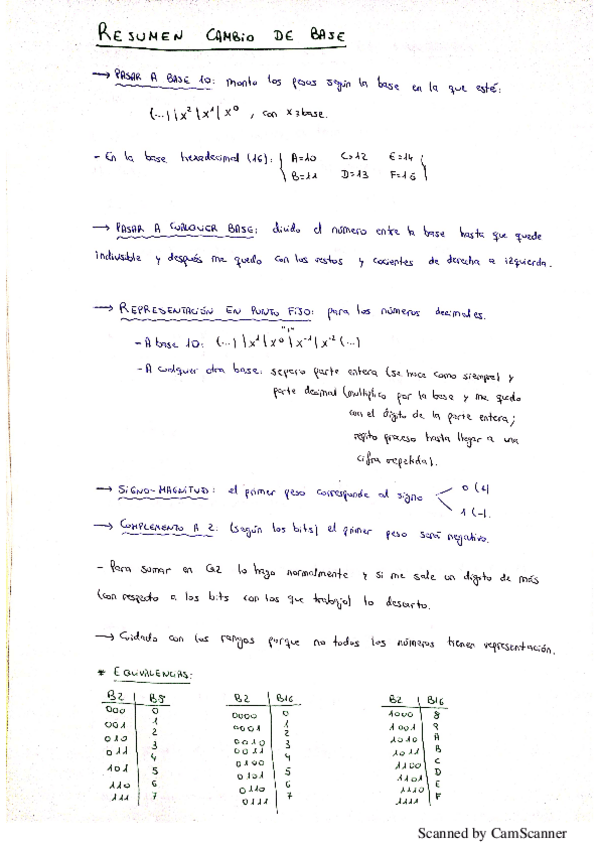 RESUMEN CAMBIO DE BASE
→ PASAR A BASE 10: monto los pesos según la base en la que esté:
(...) | x² | x¹ | x⁰ , con x→base.
- En la base hexadecimal (16): A=10 C=12 E=14
B=11 D=13 F=15
→ PASAR A CUALQUIER BASE: divido el número entre la base hasta que quede
indivisible y después me quedo con los restos y cocientes de derecha a izquierda.
→ REPRESENTACIÓN EN PUNTO FIJO: para los números decimales.
","
- A base 10: (...) | x¹ | x⁰ | x⁻¹ | x⁻² (...)
- A cualquier otra base: separo parte entera (se hace como siempre) y
parte decimal (multiplico por la base y me quedo
con el dígito de la parte entera;
repito proceso hasta llegar a una
cifra repetida).
→ SIGNO-MAGNITUD: el primer peso corresponde al signo 0 (+)
1 (-).
→ COMPLEMENTO A 2: (según los bits) el primer peso será negativo.
- Para sumar en Ca2 lo hago normalmente y si me sale un dígito de más
(con respecto a los bits con los que trabajo) lo descarto.
→ Cuidado con los rangos porque no todos los números tienen representación.
* EQUIVALENCIAS:
B2 B8 B2 B16 B2 B16
000 0 0000 0 1000 8
001 1 0001 1 1001 9
010 2 0010 2 1010 A
011 3 0011 3 1011 B
4 0100 4 1100 C
101 5 0101 5 1101 D
110 6 0110 6 1110 E
111 7 0111 7 1111 F
Scanned by CamScanner